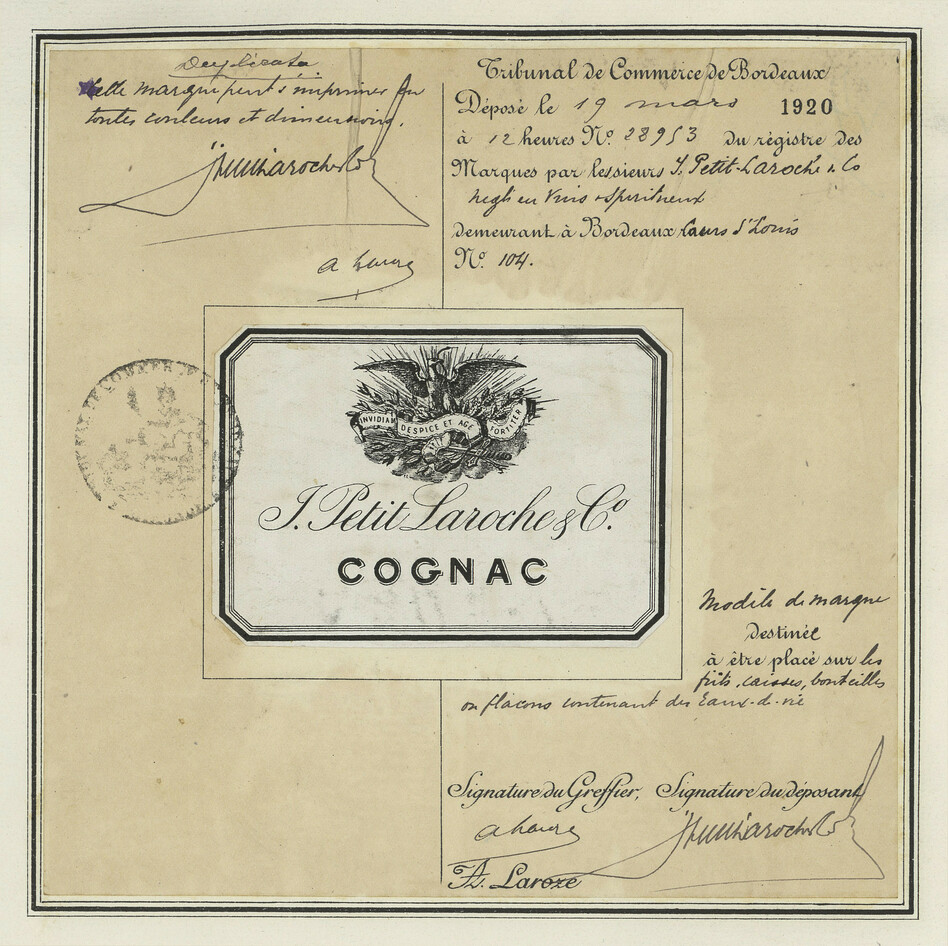 Duplicata
Cette marque peut s'imprimer en
toutes couleurs et dimensions.
A Laroze
Tribunal de Commerce de Bordeaux
Déposé le 19 mars 1920
à 12 heures No. 28953 du régistre des
Marques par les sieurs J. Petit-Laroche & Co
négts en Vins & Spiritueux
demeurant à Bordeaux Cours St Louis
No. 104.
INVIDIAM DESPICE ET AGE FORTITER
J. Petit Laroche & Co.
COGNAC
Modèle de marque
destinée
à être placé sur les
fûts, caisses, bouteilles
ou flacons contenant des Eaux-de-vie
Signature du Greffier, Signature du déposant
A Laroze
A. Laroze